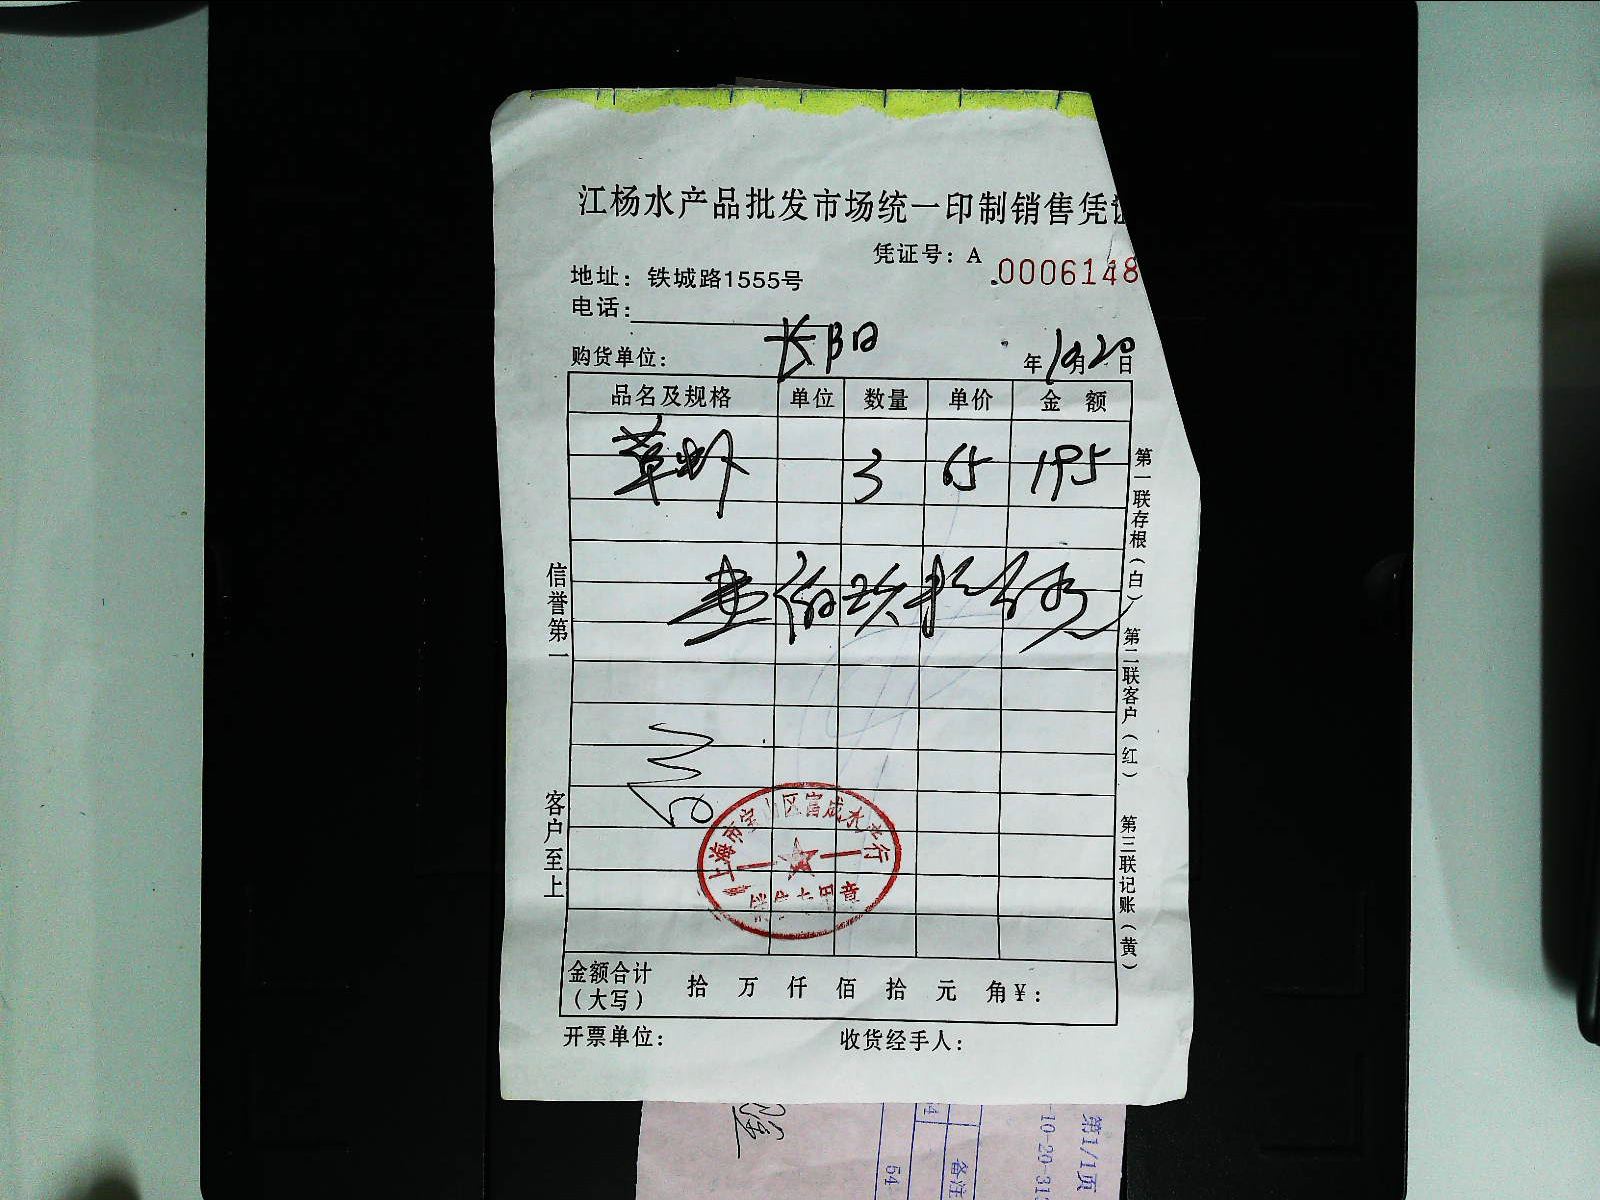 江杨水产品批发市场统一印制销售凭证
凭证号：A 0006148
地址：铁城路1555号
电话：
购货单位：长阳 年10月20日
品名及规格 单位 数量 单价 金额
草虾 3 65 195
壹佰玖拾伍元
信誉第一
客户至上
第一联存根（白）
第二联客户（红）
第三联记账（黄）
上海市宝山区富成水产行
金额合计（大写） 拾 万 仟 佰 拾 元 角￥：
开票单位： 收货经手人：
第1/1页
备注
54